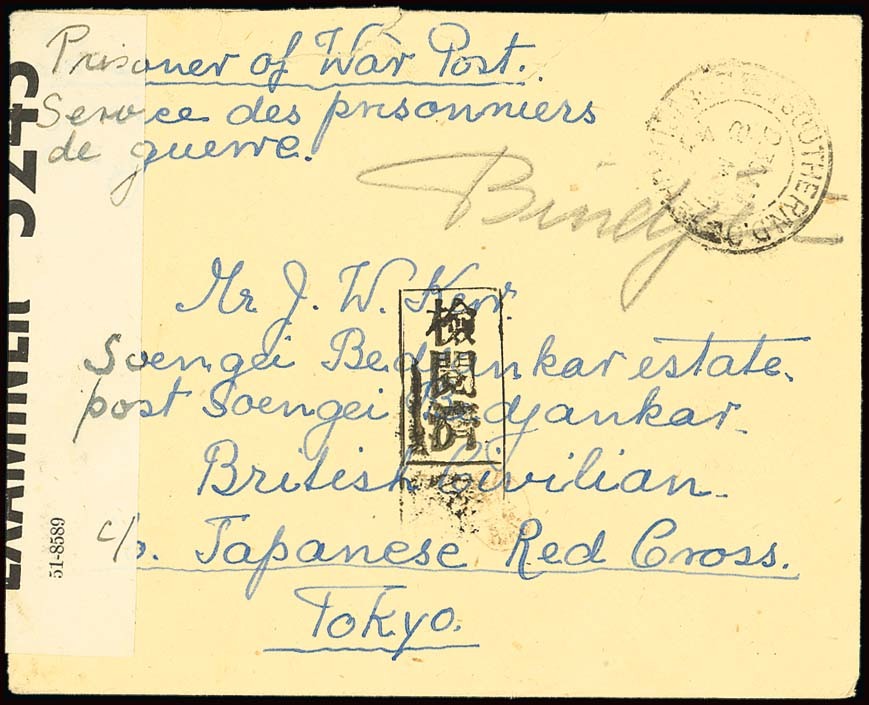 Prisoner of War Post.
Service des prisonniers
de guerre.
Mr. J. W. Kerr.
Soengei Bedjankar estate.
post Soengei Bedjankar.
British Civilian.
c/o. Japanese Red Cross.
Tokyo.
検閲済
EXAMINER 5245
51-8589
SOUTHERN